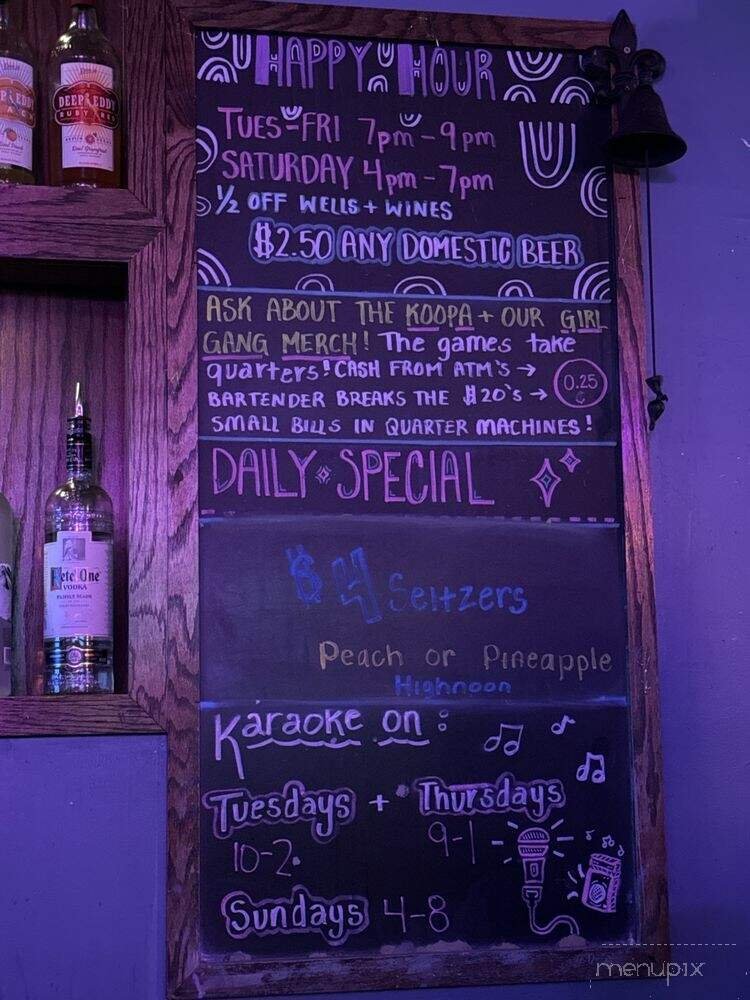 HAPPY HOUR
TUES-FRI 7pm-9pm
SATURDAY 4pm-7pm
1/2 OFF WELLS + WINES
$2.50 ANY DOMESTIC BEER
ASK ABOUT THE KOOPA + OUR GIRL
GANG MERCH! The games take
quarters! CASH FROM ATM'S →
BARTENDER BREAKS THE $20's →
0.25
¢
SMALL BILLS IN QUARTER MACHINES!
DAILY SPECIAL
$4 Seltzers
Peach or Pineapple
Highnoon
Karaoke on:
Tuesdays + Thursdays
10-2. 9-1
Sundays 4-8
DEEP EDDY
RUBY RED
Ketel One
VODKA
menupix